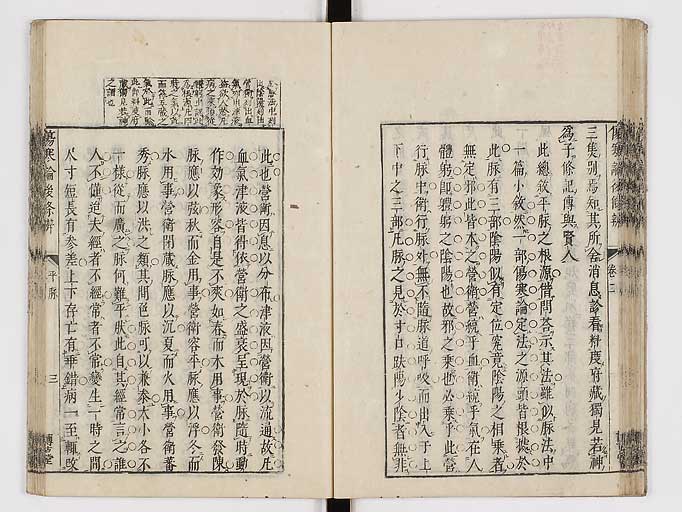 三隻別焉知其所舍消息診看料度府藏獨見若神
爲子條記傳與賢人
此總敘平脉之根源借問荅示其法雖似脉法中
一篇小敘然一部傷寒論定法之源頭皆根㨿於
此脉有三部陰陽似有定位䆒竟陰陽之相乗者
無定邪此皆本之營衛營統乎血衛統乎氣在人
體躬即體躬之陰陽也故邪之乗也必乗乎此營
行脉中衛行脉外無不隨脉道呼吸而出入于上
下中之三部凡脉之見於寸口趺陽少陰者無非
此也營衛因息以分布津液因營衛以流通故凡
血氣津液皆得依營衛之盛衰呈現於脉隨時動
作効象形容自是不爽如春而木用事營衛發陳
脉應以弦秋而金用事營衛容平脉應以浮冬而
水用事營衛閉藏脉應以沉夏而火用事營衛蕃
秀脉應以洪之類其間色脉可以兼泰大小各不
一樣從而廣之脉何難平㦲此自其經常言之誰
人不僅迨夫經者不經常者不常變生一時之間
尺寸短長有參差上下存亡有乖錯病一至輙攺
傷寒論後條辨
平脉
三
博古堂
卷二